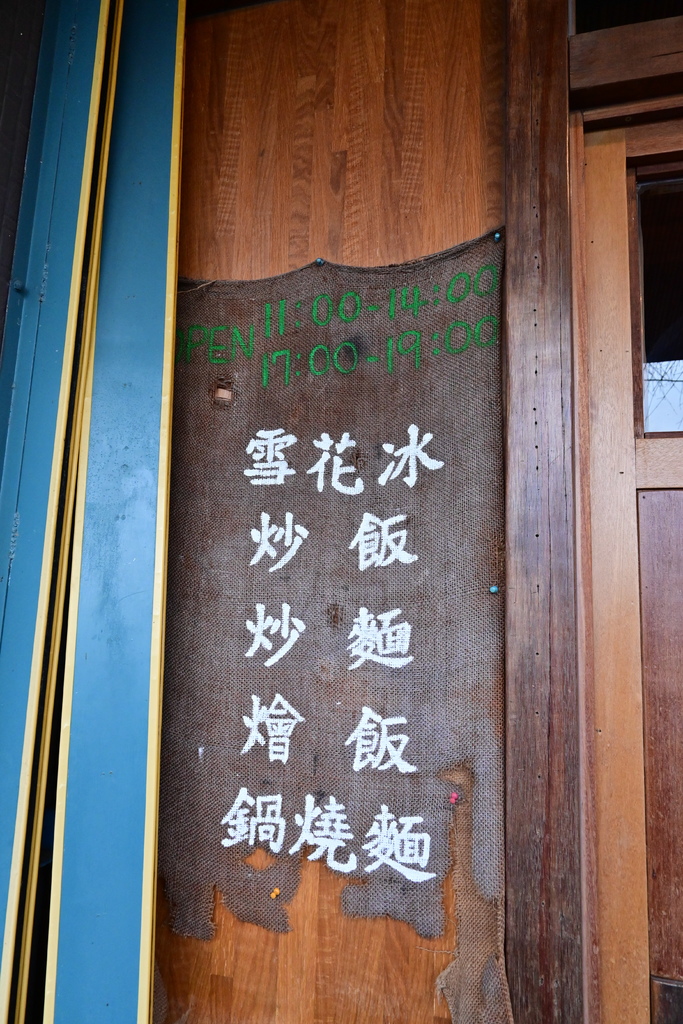 OPEN 11:00-14:00
17:00-19:00
雪花冰
炒飯
炒麵
燴飯
鍋燒麵